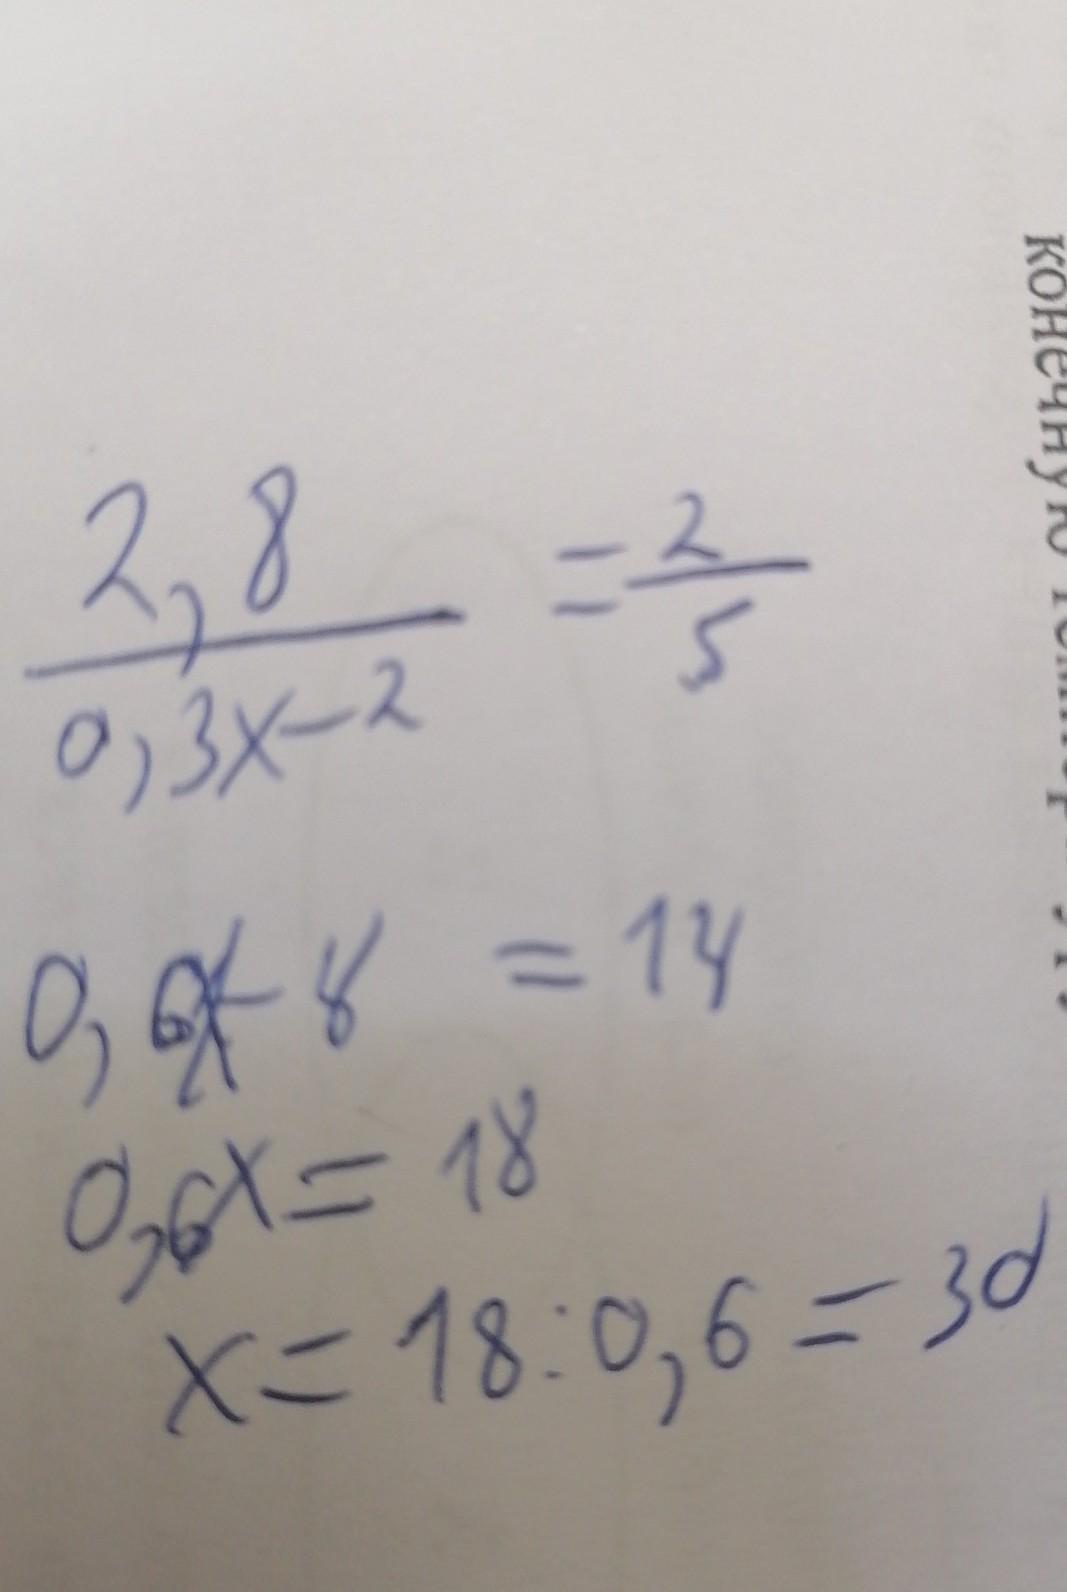 2,8 / 0,3x-2 = 2 / 5
0,6x-8 = 14
0,6x = 18
x = 18:0,6 = 30
конечную